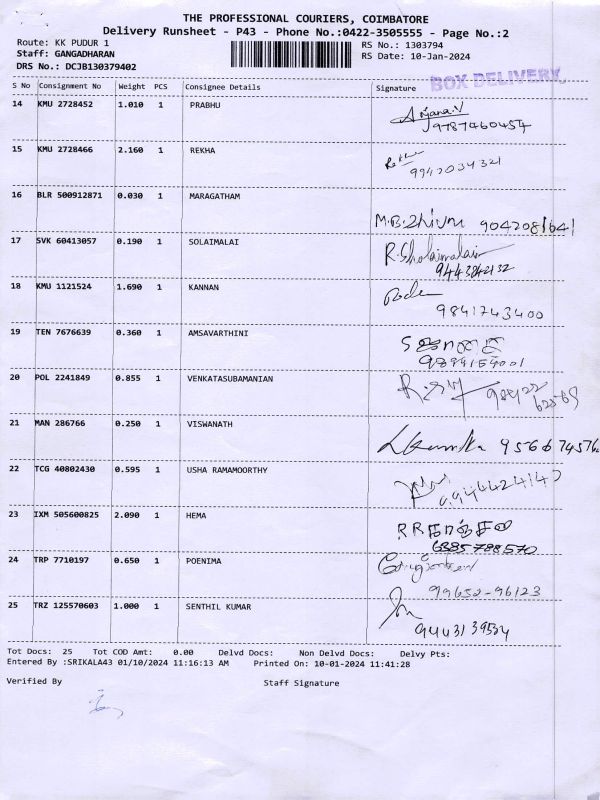 THE PROFESSIONAL COURIERS, COIMBATORE
Delivery Runsheet - P43 - Phone No.:0422-3505555 - Page No.:2
Route: KK PUDUR 1
Staff: GANGADHARAN
DRS No.: DCJB130379402
RS No.: 1303794
RS Date: 10-Jan-2024
BOX DELIVERY
S No Consignment No Weight PCS Consignee Details Signature
14 KMU 2728452 1.010 1 PRABHU
Anjana.V
9787460454
15 KMU 2728466 2.160 1 REKHA
Rekha
9942034321
16 BLR 500912871 0.030 1 MARAGATHAM
M.B.Shivani 9042081641
17 SVK 60413057 0.190 1 SOLAIMALAI
R.Sholaimalai
9443842132
18 KMU 1121524 1.690 1 KANNAN
9841743400
19 TEN 7676639 0.360 1 AMSAVARTHINI
20 POL 2241849 0.855 1 VENKATASUBAMANIAN
21 MAN 286766 0.250 1 VISWANATH
22 TCG 40802430 0.595 1 USHA RAMAMOORTHY
23 IXM 505600825 2.090 1 HEMA
6385788570
24 TRP 7710197 0.650 1 POENIMA
99652-96123
25 TRZ 125570603 1.000 1 SENTHIL KUMAR
9443139534
Tot Docs: 25 Tot COD Amt: 0.00 Delvd Docs: Non Delvd Docs: Delvy Pts:
Entered By :SRIKALA43 01/10/2024 11:16:13 AM Printed On: 10-01-2024 11:41:28
Verified By Staff Signature